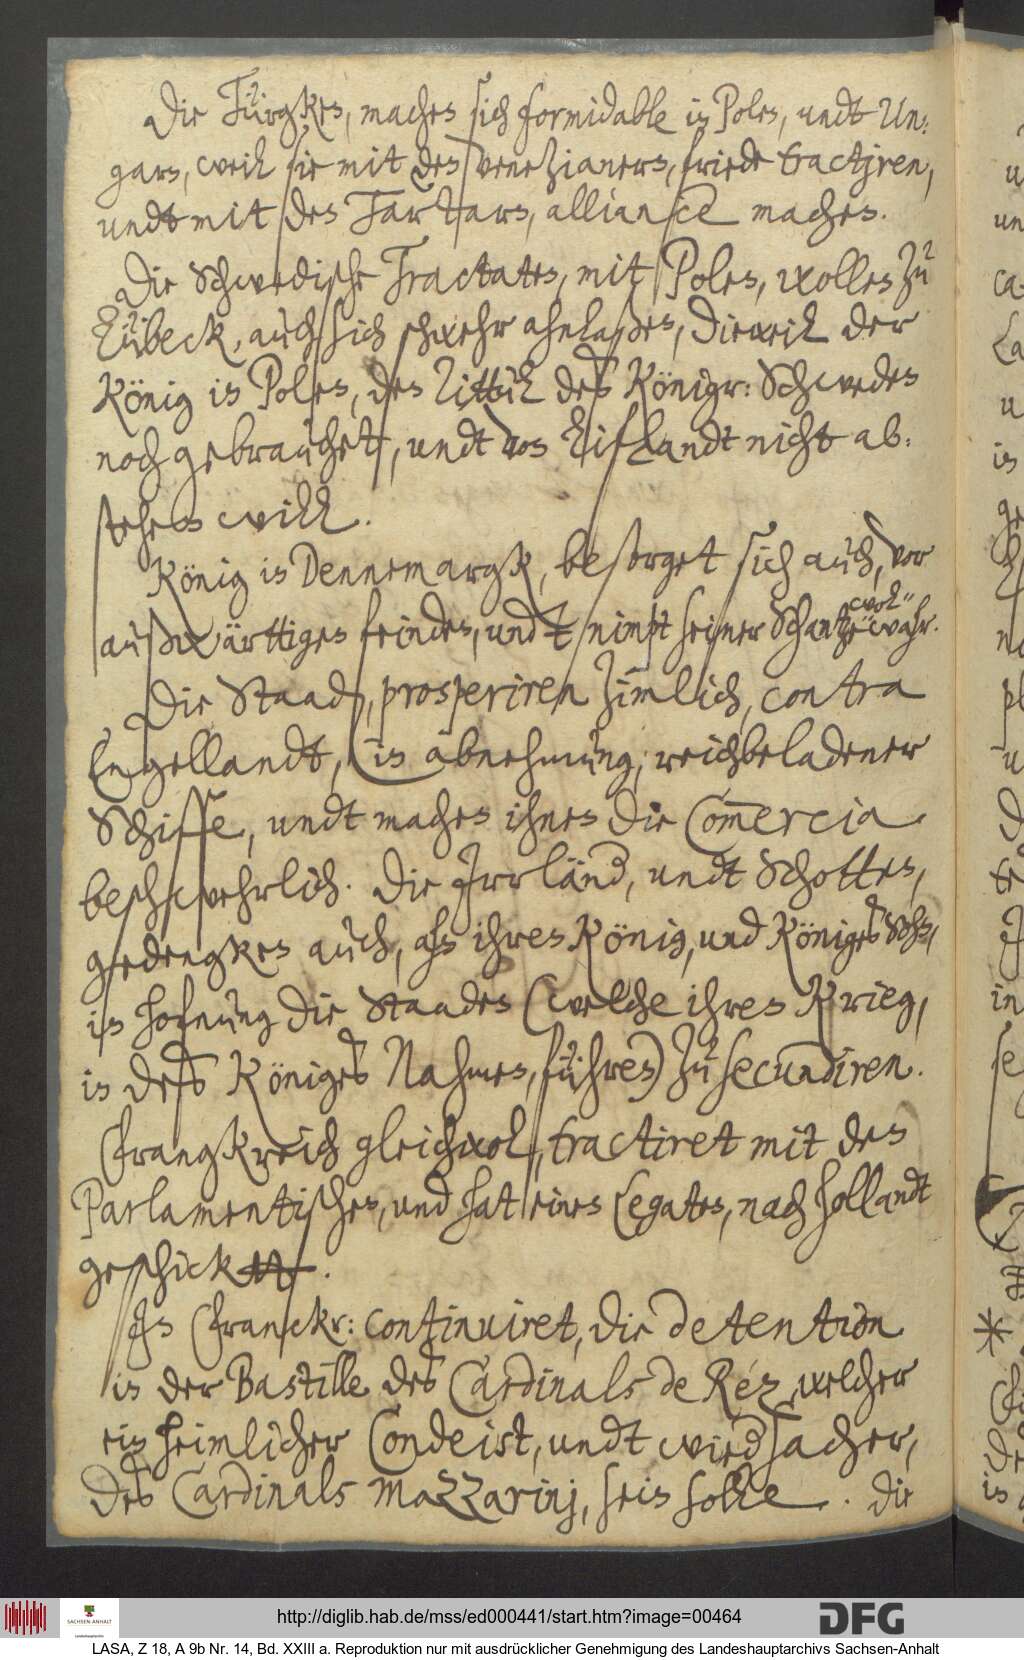 Die Türgken, machen sich formidable in Polen, undt Un:
garn, weil sie mit den Venezianern, friede tractiren,
undt mit den Tartarn, alliance machen.
Die Schwedische Tractaten, mit Polen, wollen zu
Lübeck, auch sich schwehr ahnlaßen, dieweil der
König in Polen, den Tittul deß Königr: Schweden
noch gebrauchet, undt von Lifflandt nicht ab:
stehen will.
König in Dennemargk, besorget sich auch, vor
außwärttigen feinden, undt nimpt seiner Schantze wol wahr.
Die Staad, prosperiren zimlich, contra
Engellandt, in abnehmung, reichbeladener
Schiffe, undt machen ihnen die Comercia
beschwehrlich. Die Irrländ, undt Schotten,
gedengken auch, ahn ihren König, und Königes Sohn,
in hofnung die Staaden (welche ihren Krieg,
in deß Königes Nahmen, führen) zu secundiren.
Frangkreich gleichwol, tractiret mit den
Parlamentischen, und hat einen Legaten, nach hollandt
geschickt.
In Franckr: continuiret, die detention
in der Bastille des Cardinals de Réz, welcher
ein heimlicher Condeist, undt widersacher,
des Cardinals Mazzarinj, sein solle. Die
http://diglib.hab.de/mss/ed000441/start.htm?image=00464
DFG
SACHSEN-ANHALT
LASA, Z 18, A 9b Nr. 14, Bd. XXIII a. Reproduktion nur mit ausdrücklicher Genehmigung des Landeshauptarchivs Sachsen-Anhalt